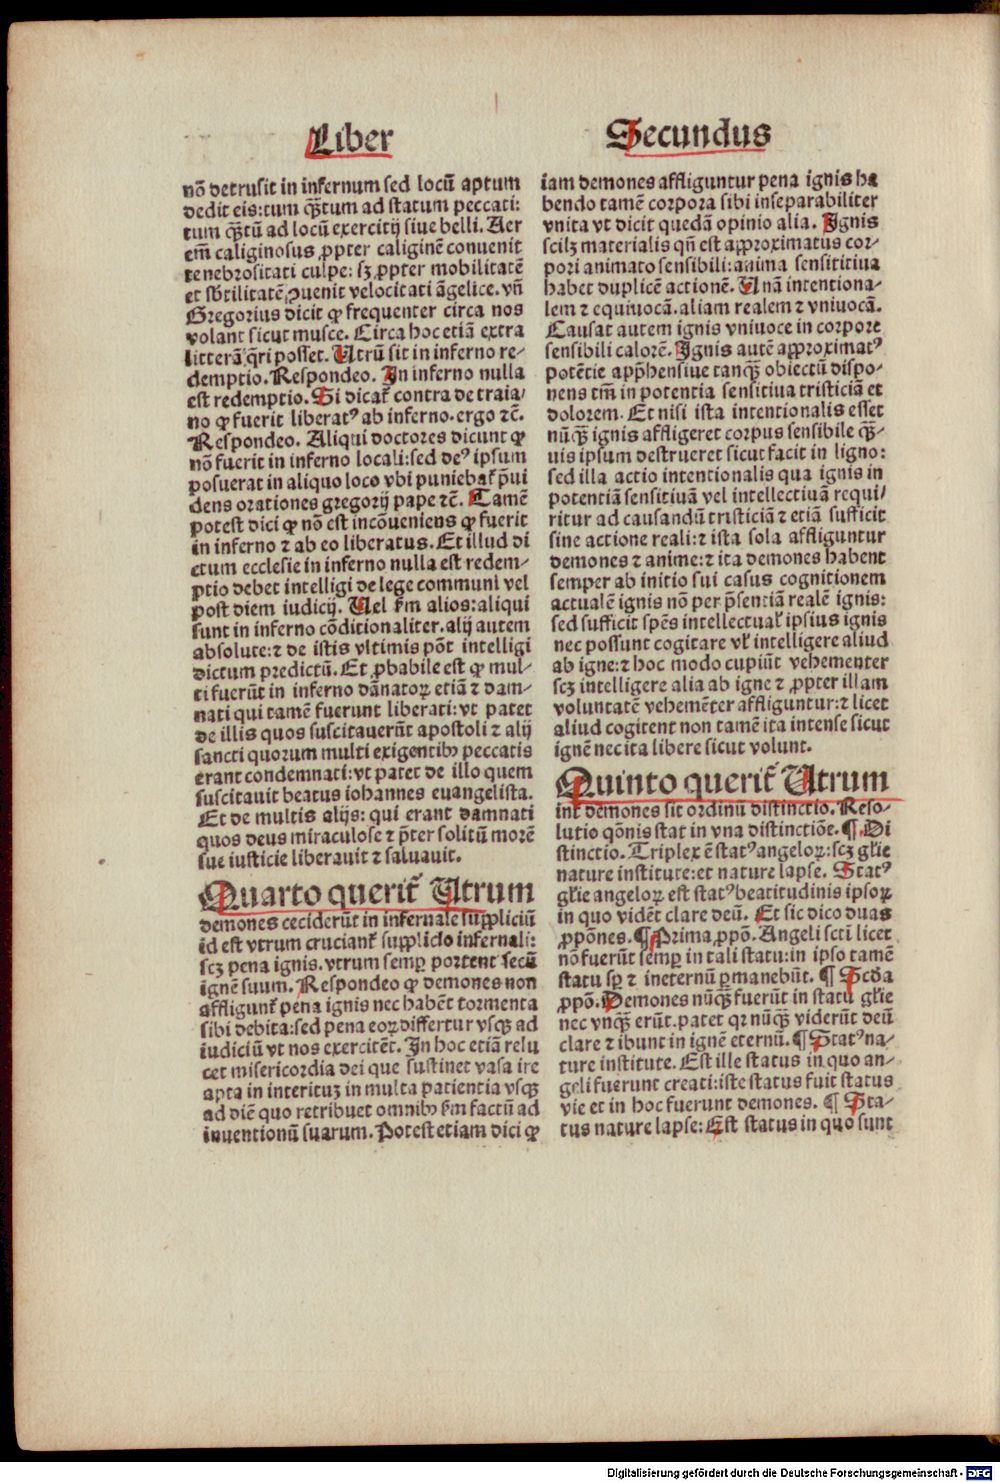 Liber
nō detrusit in infernum sed locū aptum
dedit eis: tum qȝtum ad statum peccati:
tum qȝtū ad locū exercitij siue belli. Aer
em̄ caliginosus ꝓpter caliginē conuenit
tenebrositati culpe: sȝ ꝓpter mobilitatē
et sb̄tilitatē ꝯuenit velocitati āgelice. vn̄
Gregorius dicit ꝙ frequenter circa nos
volant sicut musce. Circa hoc etiā extra
litterā q̄ri posset. Utrū sit in inferno re-
demptio. Respondeo. In inferno nulla
est redemptio. Si dicat̄ contra de traia/
no ꝙ fuerit liberatꝰ ab inferno. ergo ⁊c̄.
Respondeo. Aliqui doctores dicunt ꝙ
nō fuerit in inferno locali: sed deꝰ ipsum
posuerat in aliquo loco vbi puniebat̄ p̄ui
dens orationes gregorij pape ⁊c̄. Tamē
potest dici ꝙ nō est incōueniens ꝙ fuerit
in inferno ⁊ ab eo liberatus. Et illud di
ctum ecclesie in inferno nulla est redem-
ptio debet intelligi de lege communi vel
post diem iudicij. Uel km̄ alios: aliqui
sunt in inferno cōditionaliter. alij autem
absolute: ⁊ de istis vltimis pōt intelligi
dictum predictū. Et ꝓbabile est ꝙ mul-
ti fuerūt in inferno dānatoꝝ etiā ⁊ dam-
nati qui tamē fuerunt liberati: vt patet
de illis quos suscitauerūt apostoli ⁊ alij
sancti quorum multi exigentibꝰ peccatis
erant condemnati: vt patet de illo quem
suscitauit beatus iohannes euangelista.
Et de multis alijs: qui erant damnati
quos deus miraculose ⁊ p̄ter solitū morē
sue iusticie liberauit ⁊ saluauit.
Quarto querit̄ Utrum
demones ceciderūt in infernale suppliciū
id est vtrum cruciant̄ supplicio infernali:
scȝ pena ignis. vtrum semꝑ portent secū
ignē suum. Respondeo ꝙ demones non
affligunt̄ pena ignis nec habēt tormenta
sibi debita: sed pena eoꝝ differtur vsqȝ ad
iudiciū vt nos exercitēt. In hoc etiā relu
cet misericordia dei que sustinet vasa ire
apta in interituȝ in multa patientia vsqȝ
ad diē quo retribuet omnibꝰ km̄ factū ad
inuentionū suarum. Potest etiam dici ꝙ
Secundus
iam demones affliguntur pena ignis ha
bendo tamē corpora sibi inseparabiliter
vnita vt dicit quedā opinio alia. Ignis
scilȝ materialis qn̄ est approximatus cor-
pori animato sensibili: anima sensititiua
habet duplicē actionē. Unā intentiona-
lem ⁊ equiuocā. aliam realem ⁊ vniuocā.
Causat autem ignis vniuoce in corpore
sensibili calorē. Ignis autē approximatꝰ
potētie app̄hensiue tanqȝ obiectū dispo-
nens tm̄ in potentia sensitiua tristiciā et
dolorem. Et nisi ista intentionalis esset
nūqȝ ignis affligeret corpus sensibile qȝ-
uis ipsum destrueret sicut facit in ligno:
sed illa actio intentionalis qua ignis in
potentiā sensitiuā vel intellectiuā requi/
ritur ad causandū tristiciā ⁊ etiā sufficit
sine actione reali: ⁊ ista sola affliguntur
demones ⁊ anime: ⁊ ita demones habent
semper ab initio sui casus cognitionem
actualē ignis nō per p̄sentiā realē ignis:
sed sufficit spēs intellectual̄ ipsius ignis
nec possunt cogitare vl̄ intelligere aliud
ab igne: ⁊ hoc modo cupiūt vehementer
scȝ intelligere alia ab igne ⁊ ꝓpter illam
voluntatē vehemēter affliguntur: ⁊ licet
aliud cogitent non tamē ita intense sicut
ignē nec ita libere sicut volunt.
Quinto querit̄ Utrum
int̄ demones sit ordinū distinctio. Reso-
lutio qōnis stat in vna distinctiōe. ¶ Di
stinctio. Triplex ē statꝰ angeloꝝ: scȝ gl̄ie
nature institute: et nature lapse. Statꝰ
gl̄ie angeloꝝ est statꝰ beatitudinis ipsoꝝ
in quo vidēt clare deū. Et sic dico duas
ꝓpōnes. ¶ Prima ꝓpō. Angeli sancti licet
nō fuerūt semꝑ in tali statu: in ipso tamē
statu sꝑ ⁊ ineternū ꝑmanebūt. ¶ Scd̄a
ꝓpō. Demones nūqȝ fuerūt in statu gl̄ie
nec vnqȝ erūt. patet qꝛ nūqȝ viderūt deū
clare ⁊ ibunt in ignē eternū. ¶ Statꝰ na-
ture institute. Est ille status in quo an-
geli fuerunt creati: iste status fuit status
vie et in hoc fuerunt demones. ¶ Sta-
tus nature lapse: Est status in quo sunt
Digitalisierung gefördert durch die Deutsche Forschungsgemeinschaft - DFG